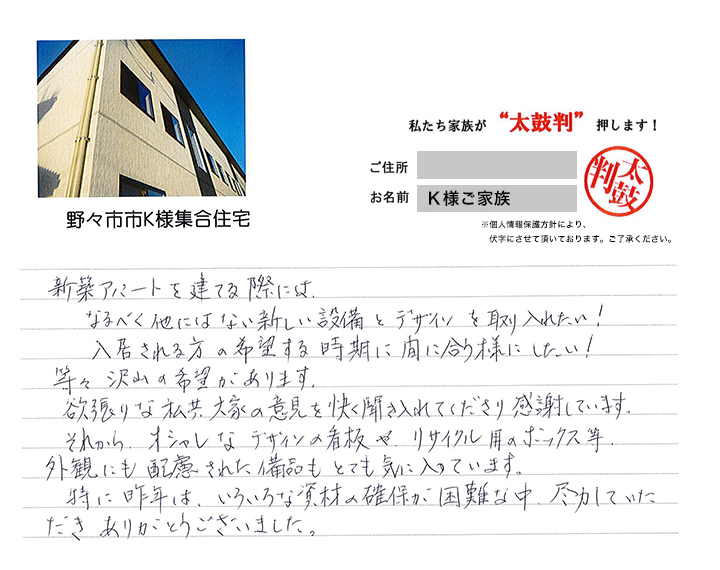 私たち家族が “太鼓判” 押します！
ご住所
お名前 K様ご家族
太鼓判
※個人情報保護方針により、
伏字にさせて頂いております。ご了承ください。
野々市市K様集合住宅
新築アパートを建てる際には、
なるべく他にはない新しい設備とデザインを取り入れたい！
入居される方の希望する時期に間に合う様にしたい！
等々沢山の希望があります。
欲張りな私共大家の意見を快く聞き入れてくださり感謝しています。
それから、オシャレなデザインの看板や、リサイクル用のボックス等、
外観にも配慮された備品もとても気に入っています。
特に昨年は、いろいろな資材の確保が困難な中、尽力していた
だきありがとうございました。